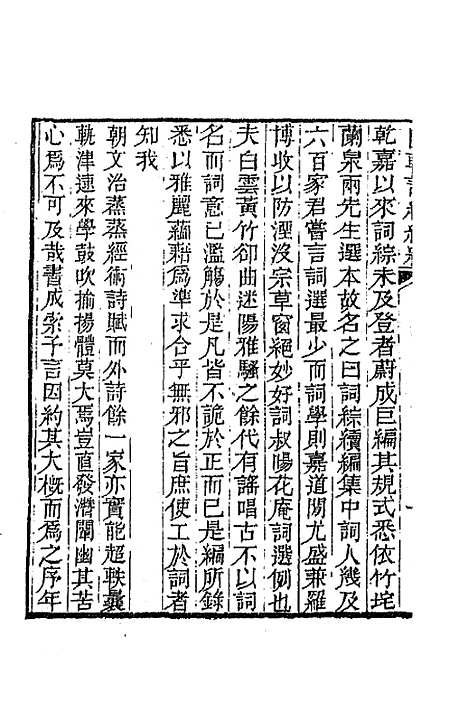 乾嘉以來詞綜未及登者蔚成巨編其規式悉依竹垞
蘭泉兩先生選本故名之曰詞綜續編集中詞人幾及
六百家君嘗言詞選最少而詞學則嘉道閒尤盛兼羅
博收以防湮沒宗草窗絕妙好詞叔暘花庵詞選例也
夫白雲黃竹卻曲迷陽雅騷之餘代有謠唱古不以詞
名而詞意已濫觴於是凡皆不詭於正而已是編所錄
悉以雅麗蘊藉爲準求合乎無邪之旨庶使工於詞者
知我
朝文治蒸蒸經術詩賦而外詩餘一家亦實能超軼曩
軌津逮來學鼓吹揄揚體莫大焉豈直發潛闡幽其苦
心爲不可及哉書成索予言因約其大概而爲之序年